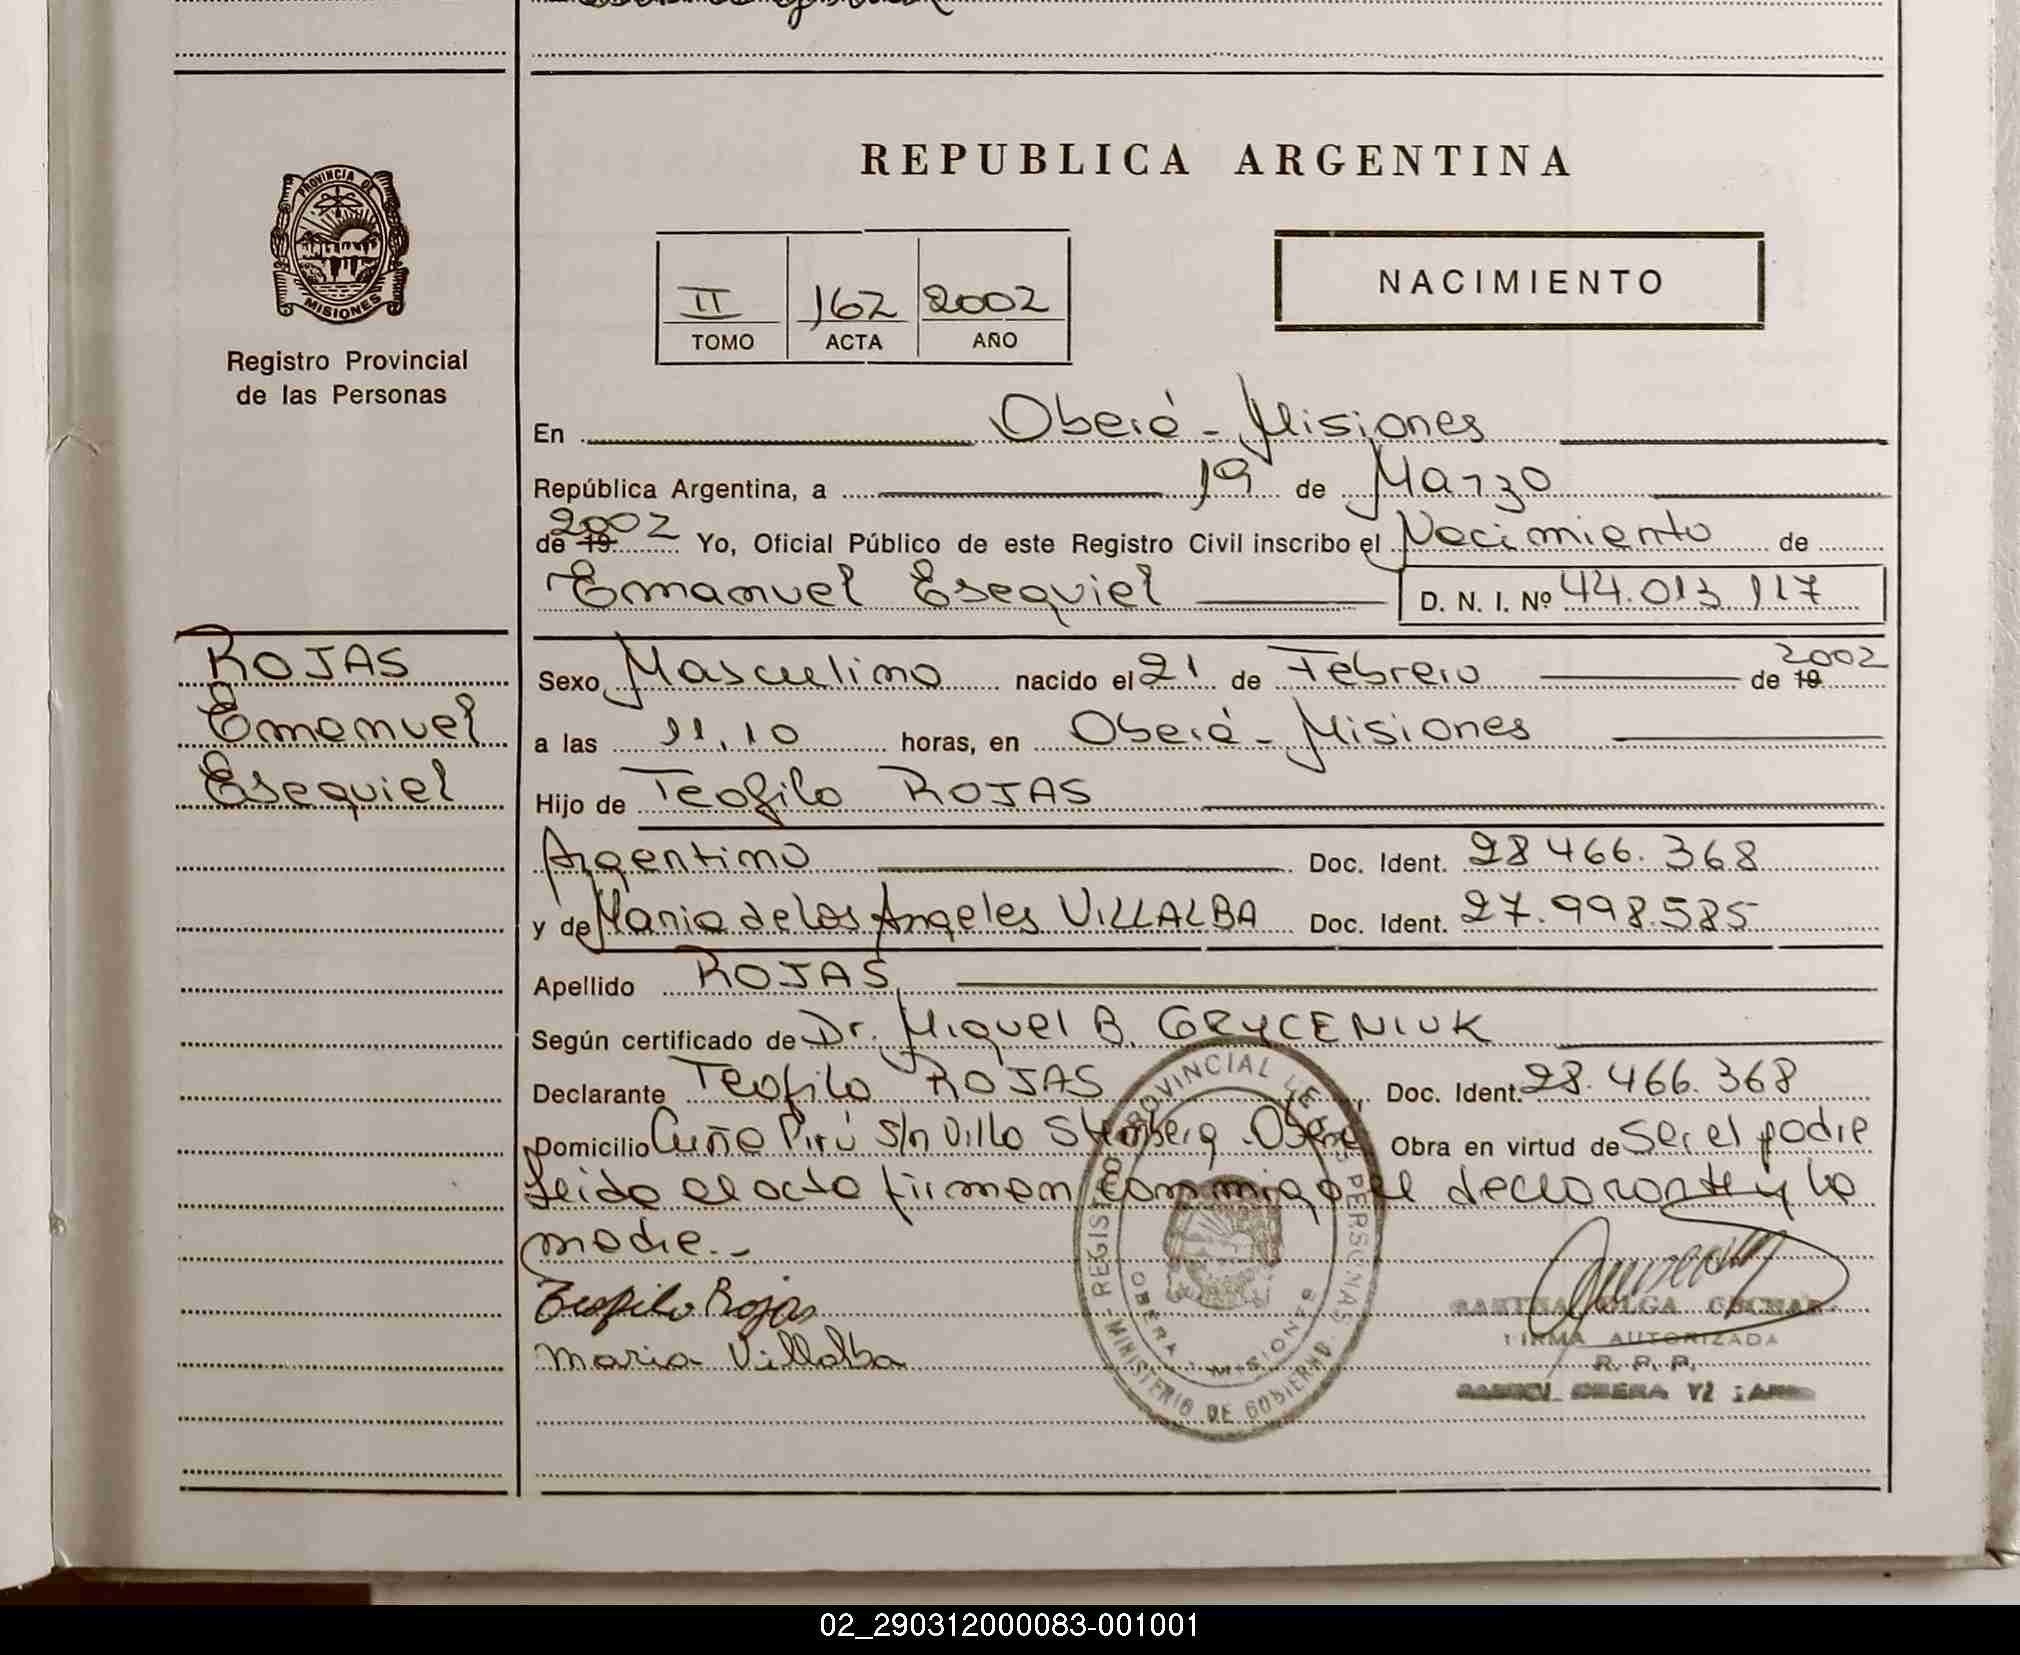 REPUBLICA ARGENTINA
PROVINCIA DE
MISIONES
Registro Provincial
de las Personas
II 162 2002
TOMO ACTA AÑO
NACIMIENTO
En Oberá - Misiones
República Argentina, a 19 de Marzo
de 19 2002 Yo, Oficial Público de este Registro Civil inscribo el Nacimiento de
Emanuel Esequiel D. N. I. Nº 44.013 117
ROJAS
Emanuel
Esequiel
Sexo Masculino nacido el 21 de Febrero de 19 2002
a las 11,10 horas, en Oberá - Misiones
Hijo de Teofilo ROJAS
Argentino Doc. Ident. 28 466. 368
y de Maria de los Angeles VILLALBA Doc. Ident. 27.998.585
Apellido ROJAS
Según certificado de Dr. Miguel B. GRYCENIUK
Declarante Teofilo ROJAS Doc. Ident. 28.466.368
Domicilio Cuña Pirú s/n Villa Oberá Obra en virtud de ser el padre
Leida el acta firman conmigo el declarante y la
madre.-
Teofilo Rojas
Maria Villalba
REGISTRO PROVINCIAL DE LAS PERSONAS
MINISTERIO DE GOBIERNO
OBERA MISIONES
OLGA
FIRMA AUTORIZADA
R. P. P.
OBERA
02_290312000083-001001